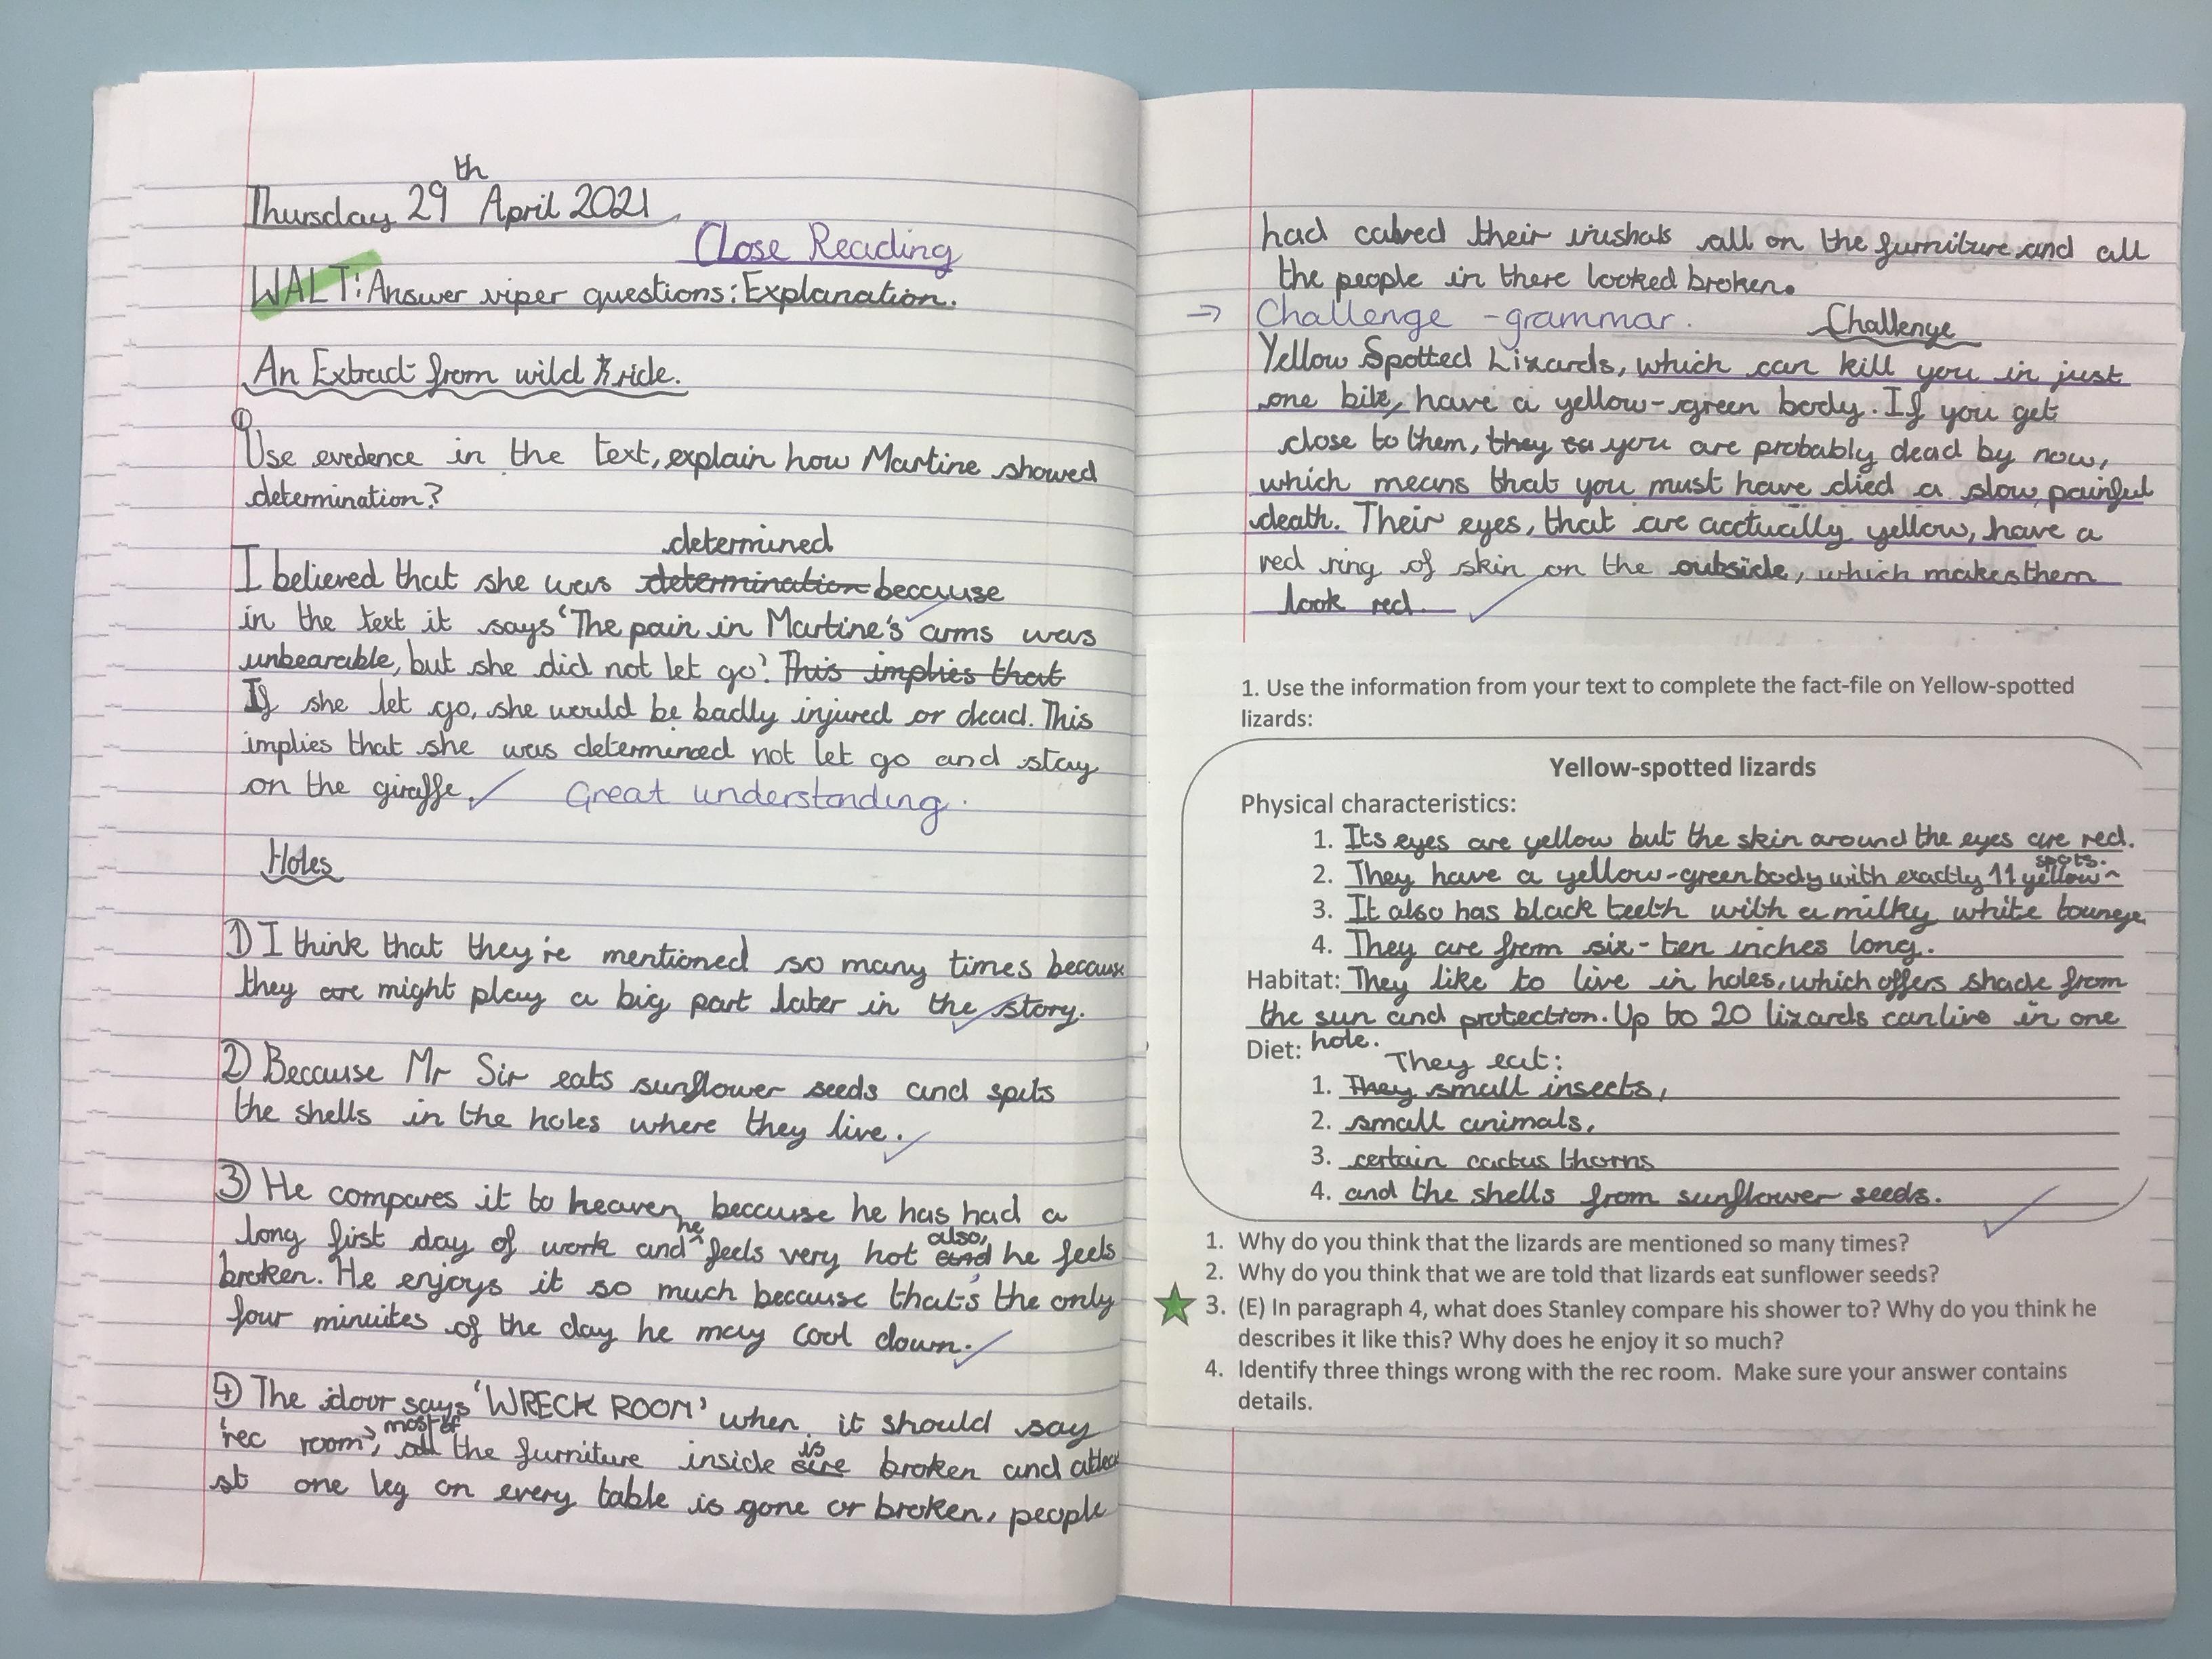 th
Thursday 29 April 2021
Close Reading
WALT: Answer viper questions: Explanation.
An Extract from wild ride.
①
Use evedence in the text, explain how Martine showed
determination?
determined
I believed that she was determination because
in the text it says 'The pain in Martine's arms was
unbearable, but she did not let go'. This implies that
If she let go, she would be badly injured or dead. This
implies that she was determined not let go and stay
on the giraffe. ✓ Great understanding.
Holes
1) I think that they're mentioned so many times because
they are might play a big part later in the story.
2) Because Mr Sir eats sunflower seeds and spits
the shells in the holes where they live.
3) He compares it to heaven, because he has had a
he also,
long first day of work and ^ feels very hot and he feels
broken. He enjoys it so much because that's the only
four minuites of the day he may cool down.
4) The door says 'WRECK ROOM' when it should say
most of is
'rec room', all the furniture inside are broken and atlea
st one leg on every table is gone or broken, people
had their all on the furniture and all
the people in there looked broken.
→ Challenge - grammar. Challenge
Yellow Spotted Lizards, which can kill you in just
one bite, have a yellow-green body. If you get
close to them, they ca you are probably dead by now,
which means that you must have died a slow, painful
death. Their eyes, that are acctually yellow, have a
red ring of skin on the outside, which makes them
look red.
1. Use the information from your text to complete the fact-file on Yellow-spotted
lizards:
Yellow-spotted lizards
Physical characteristics:
1. Its eyes are yellow but the skin around the eyes are red.
spots.
2. They have a yellow-green body with exactly 11 yellow ^
3. It also has black teeth with a milky white tounge.
4. They are from six-ten inches long.
Habitat: They like to live in holes, which offers shade from
the sun and protection. Up to 20 lizards can live in one
hole.
Diet: They eat:
1. They small insects,
2. small animals,
3. certain cactus thorns
4. and the shells from sunflower seeds.
1. Why do you think that the lizards are mentioned so many times?
2. Why do you think that we are told that lizards eat sunflower seeds?
3. (E) In paragraph 4, what does Stanley compare his shower to? Why do you think he
describes it like this? Why does he enjoy it so much?
4. Identify three things wrong with the rec room. Make sure your answer contains
details.